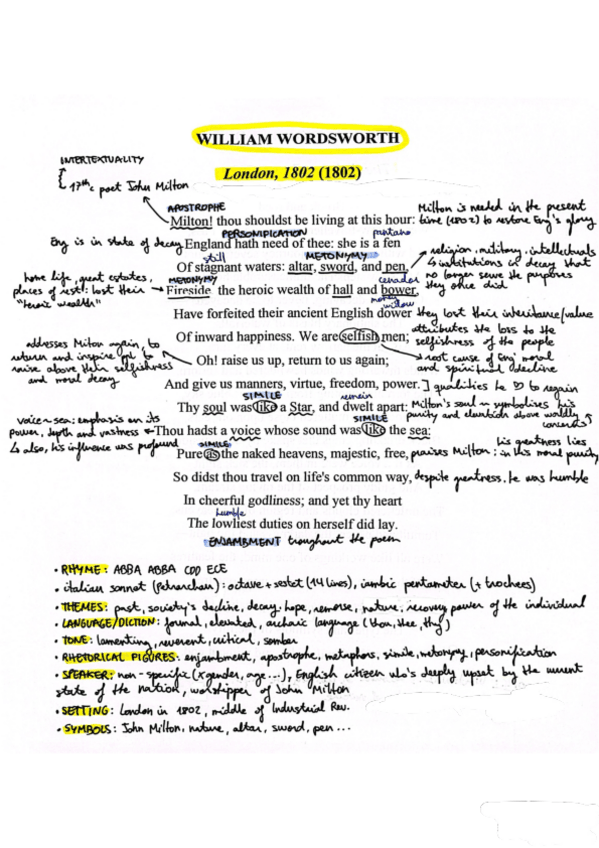 WILLIAM WORDSWORTH
London, 1802 (1802)
INTERTEXTUALITY
17th c poet John Milton
APOSTROPHE
Milton! thou shouldst be living at this hour:
Milton is needed in the present
time (1802) to restore Eng's glory
PERSONIFICATION
pantano
Eng is in state of decay
England hath need of thee: she is a fen
still
METONYMY
Of stagnant waters: altar, sword, and pen,
religion, military, intellectuals
↳ institutions in decay that
no longer serve the purposes
they once did
home life, great estates,
places of rest: lost their
"heroic wealth"
METONYMY
cenador
Fireside, the heroic wealth of hall and bower,
Have forfeited their ancient English dower
they lost their inheritance/value
Of inward happiness. We are selfish men;
attributes the loss to the
selfishness of the people
↳ root cause of Eng' moral
and spiritual decline
addresses Milton again, to
return and inspire to
raise above their selfishness
and moral decay
Oh! raise us up, return to us again;
And give us manners, virtue, freedom, power.
] qualities he to regain
SIMILE
remain
Thy soul was like a Star, and dwelt apart:
Milton's soul symbolises his
purity and elevation above worldly
concerns
voice-sea: emphasis on its
power, depth and vastness
↳ also, his influence was profound
SIMILE
Thou hadst a voice whose sound was like the sea:
SIMILE
Pure as the naked heavens, majestic, free,
praises Milton: his greatness lies
in his moral purity
So didst thou travel on life's common way,
despite greatness, he was humble
In cheerful godliness; and yet thy heart
humble
The lowliest duties on herself did lay.
ENJAMBMENT troughout the poem
• RHYME: ABBA ABBA CDD ECE
• italian sonnet (Petrarchan): octave + sestet (14 lines), iambic pentameter (+ trochees)
• THEMES: past, society's decline, decay, hope, remorse, nature, recovery power of the individual
• LANGUAGE/DICTION: formal, elevated, archaic language (thou, thee, thy)
• TONE: lamenting, reverent, critical, somber
• RHETORICAL FIGURES: enjambment, apostrophe, metaphors, simile, metonymy, personification
• SPEAKER: non-specific (x gender, age...), English citizen who's deeply upset by the current
state of the nation, worshipper of John Milton
• SETTING: London in 1802, middle of Industrial Rev.
• SYMBOLS: John Milton, nature, altar, sword, pen...